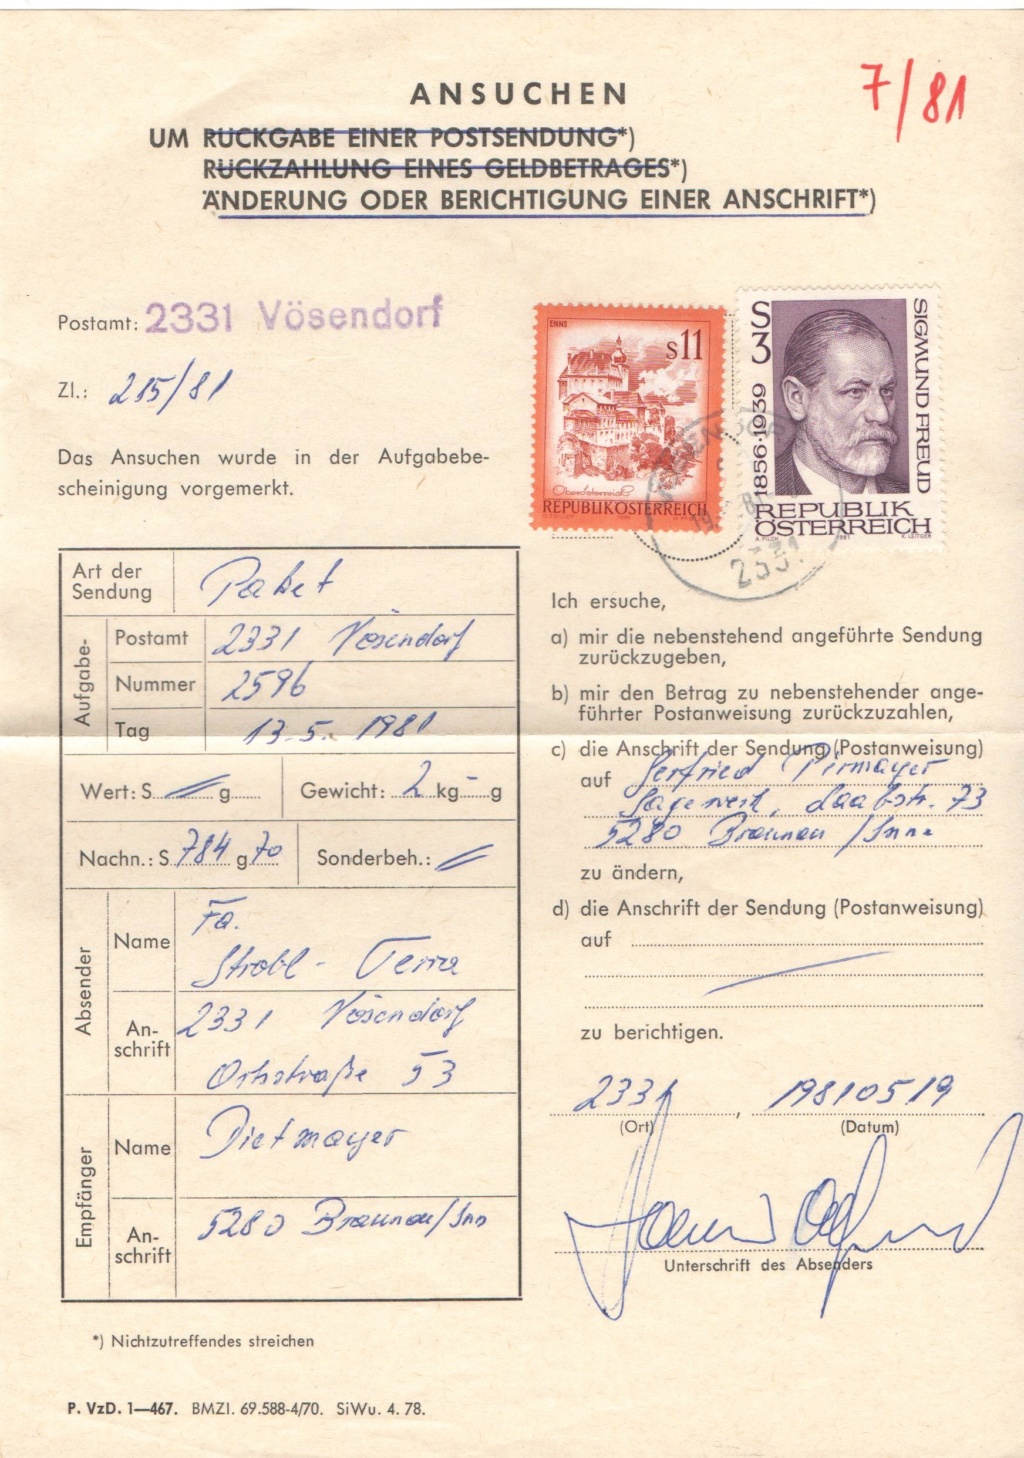 7/81
ANSUCHEN
UM RÜCKGABE EINER POSTSENDUNG*)
RÜCKZAHLUNG EINES GELDBETRAGES*)
ÄNDERUNG ODER BERICHTIGUNG EINER ANSCHRIFT*)
Postamt: 2331 Vösendorf
Zl.: 215/81
Das Ansuchen wurde in der Aufgabebe-
scheinigung vorgemerkt.
ENNS
S11
Oberösterreich
REPUBLIK ÖSTERREICH
S3
SIGMUND FREUD
1856·1939
REPUBLIK
ÖSTERREICH
A. PILCH 1981 K. LEITGEB
2331
Art der
Sendung
Paket
Aufgabe-
Postamt 2331 Vösendorf
Nummer 2596
Tag 13.5. 1981
Wert: S g
Gewicht: 2 kg – g
Nachn.: S 784 g 70
Sonderbeh.:
Absender
Name
Fa.
Strobl - Terra
An-
schrift
2331 Vösendorf
Ortsstraße 53
Empfänger
Name
Dietmayer
An-
schrift
5280 Braunau/Inn
Ich ersuche,
a) mir die nebenstehend angeführte Sendung
zurückzugeben,
b) mir den Betrag zu nebenstehender ange-
führter Postanweisung zurückzuzahlen,
c) die Anschrift der Sendung (Postanweisung)
auf Gerfried Pirmayer
Sägewerk, Laabstr. 73
5280 Braunau /Inn
zu ändern,
d) die Anschrift der Sendung (Postanweisung)
auf
zu berichtigen.
2331, 19810519
(Ort) (Datum)
Unterschrift des Absenders
*) Nichtzutreffendes streichen
P. VzD. 1—467. BMZl. 69.588-4/70. SiWu. 4. 78.